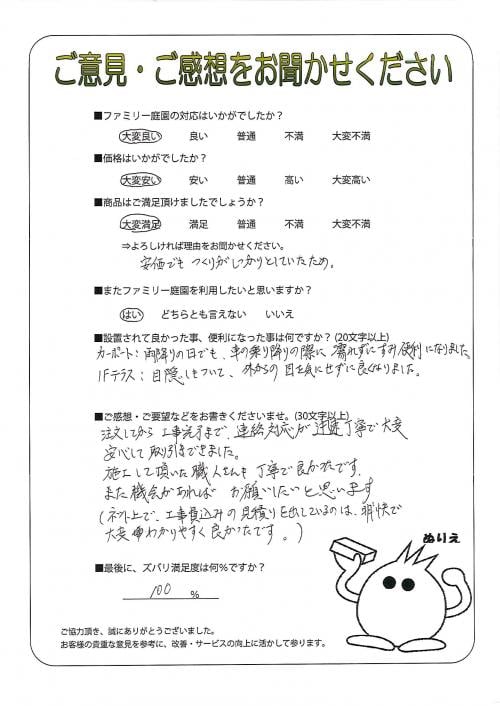 ご意見・ご感想をお聞かせください
■ファミリー庭園の対応はいかがでしたか？
大変良い 良い 普通 不満 大変不満
■価格はいかがでしたか？
大変安い 安い 普通 高い 大変高い
■商品はご満足頂けましたでしょうか？
大変満足 満足 普通 不満 大変不満
⇒よろしければ理由をお聞かせください。
安価でも つくりがしっかりとしていたため。
■またファミリー庭園を利用したいと思いますか？
はい どちらとも言えない いいえ
■設置されて良かった事、便利になった事は何ですか？(20文字以上)
カーポート：雨降りの日でも、車の乗り降りの際に濡れずにすみ便利になりました
1Fテラス：目隠しもついて、外からの目を気にせずに良くなりました。
■ご感想・ご要望などをお書きくださいませ。(30文字以上)
注文してから工事完了まで、連絡対応が迅速丁寧で大変
安心して取引できました。
施工して頂いた職人さんも丁寧で良かったです。
また機会があれば お願いしたいと思います
(ネット上で、工事費込みの見積りを出しているのは、明快で
大変わかりやすく良かったです。)
ぬりえ
■最後に、ズバリ満足度は何％ですか？
100 %
ご協力頂き、誠にありがとうございました。
お客様の貴重な意見を参考に、改善・サービスの向上に活かして参ります。